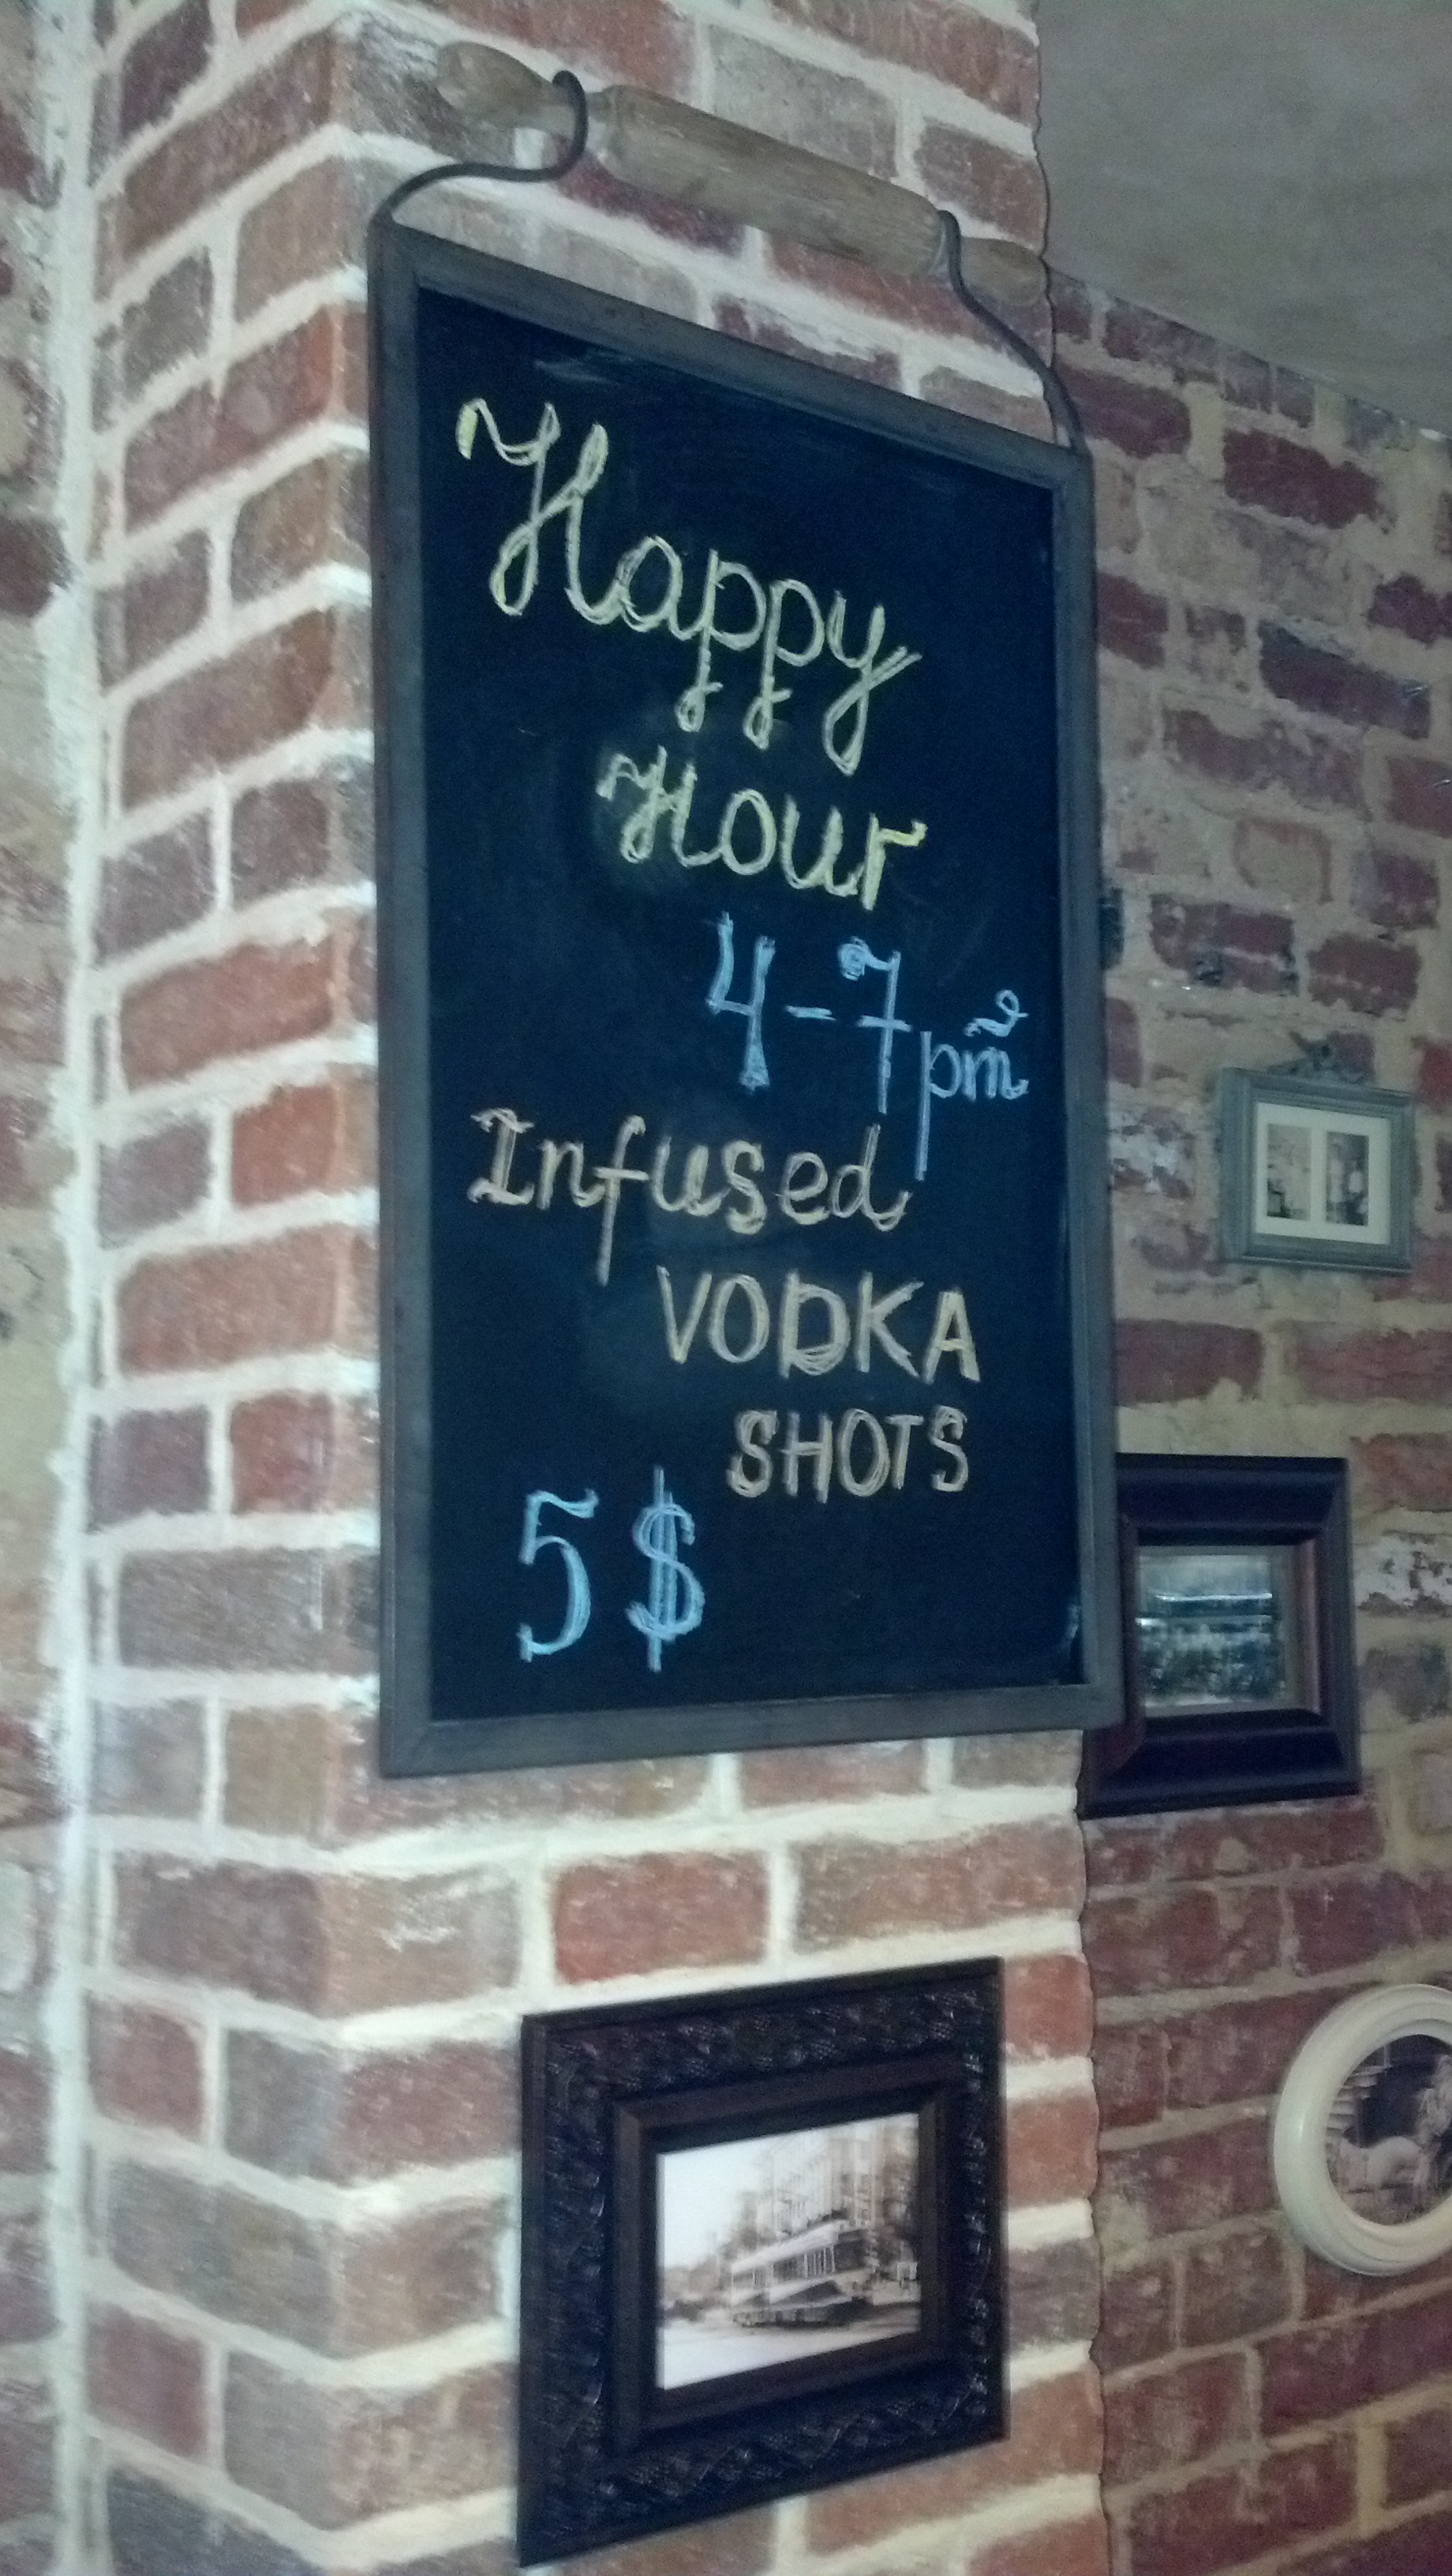 Happy
Hour
4-7pm
Infused
VODKA
SHOTS
5$